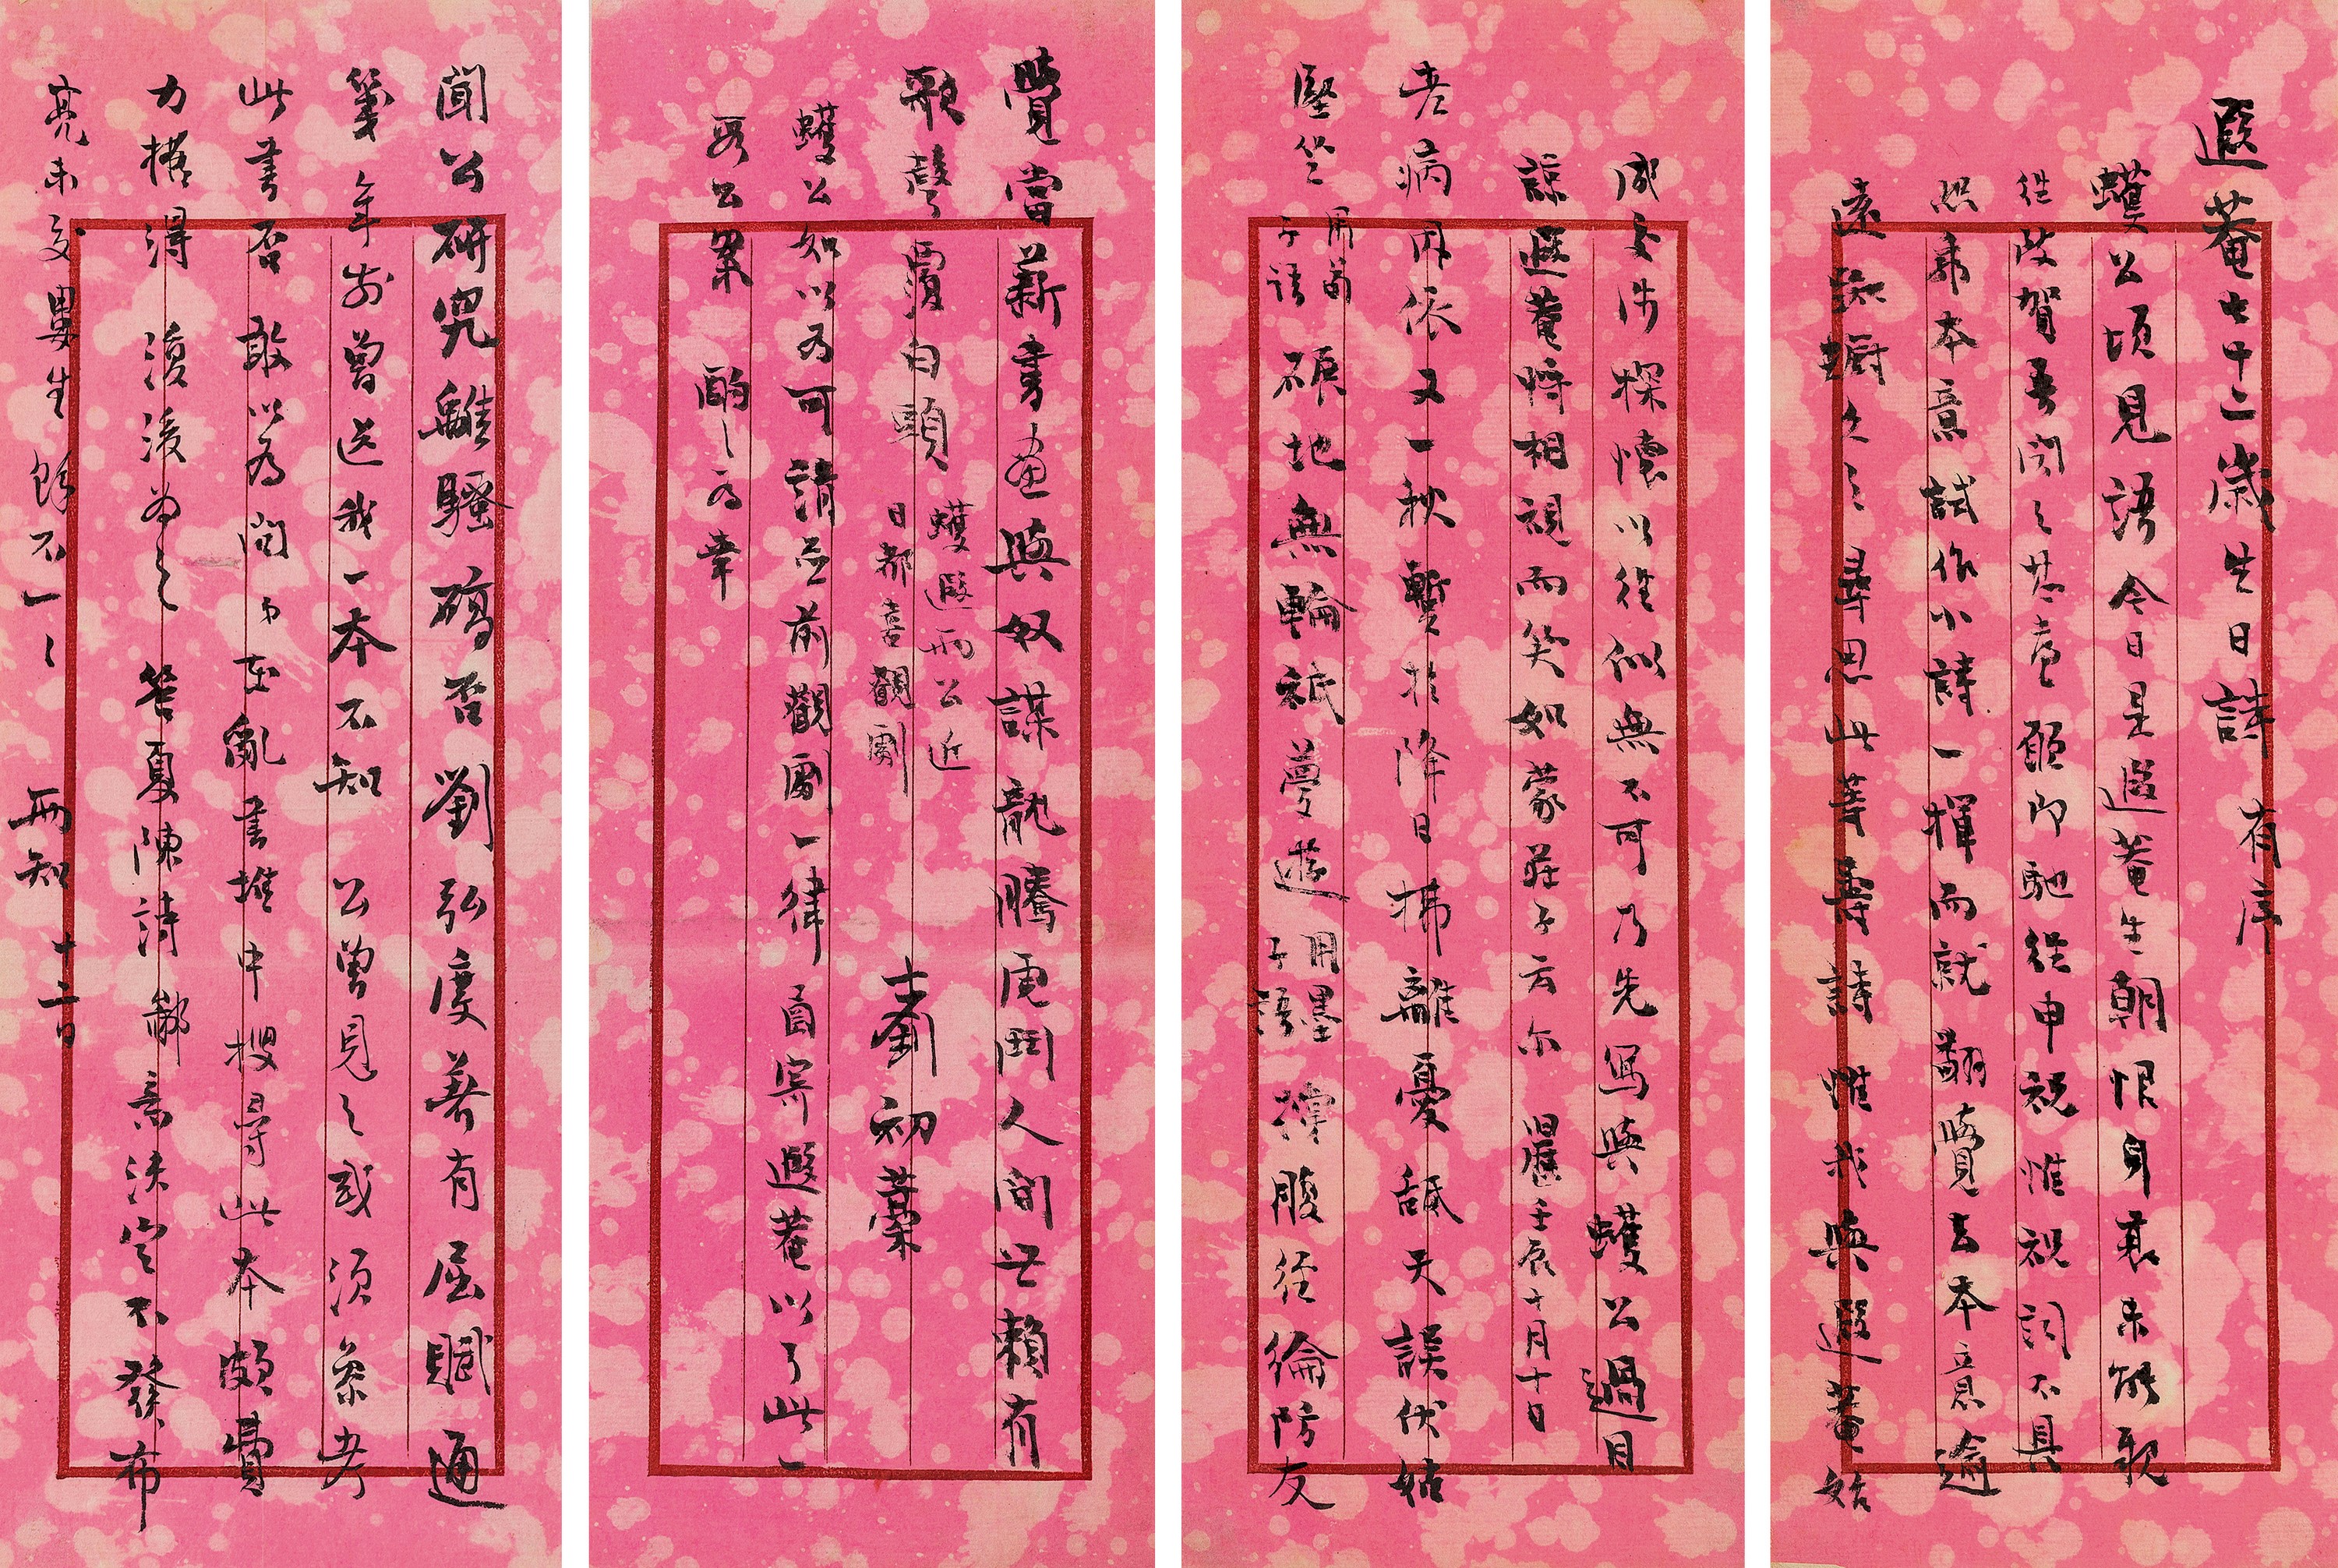 遐菴七十二歲生日詩 有序
蠖公頃見語今日是遐菴生朝恨身衰未能親
往改賀吾聞之 願即馳從申祝惟祝詞不具
 本意試作小詩一揮而就翻覺去本意逾
遠 久之尋思此等壽詩惟我與遐菴始
成交涉探懷以往似無不可乃先寫與蠖公過目
諒遐菴將相視而笑如蒙莊子云爾 舊曆壬辰十月十日
老病因依又一秋暫於降日拂離憂舐天誤伏
堅坐用荀子語 碾地無輪祇夢遊用墨子語 撐腹經綸防友
覺當薪書畫與奴謀龍騰虎鬥人間世賴有
歌聲覆白頭 蠖遐兩公近日都喜觀劇 士劉初藁
蠖公如以為可請並前觀劇一律 寄遐菴以了此一
 公案 酌之為幸
聞公研究離騷確否劉弘度著有屈賦通
箋年前曾送我一本不知公曾見之或須參考
此書否敢以為問弟在亂書堆中搜尋此本頗費
力搭得後後為之 答夏陳詩鄙意決定不發布
亮未 兩知 十二日